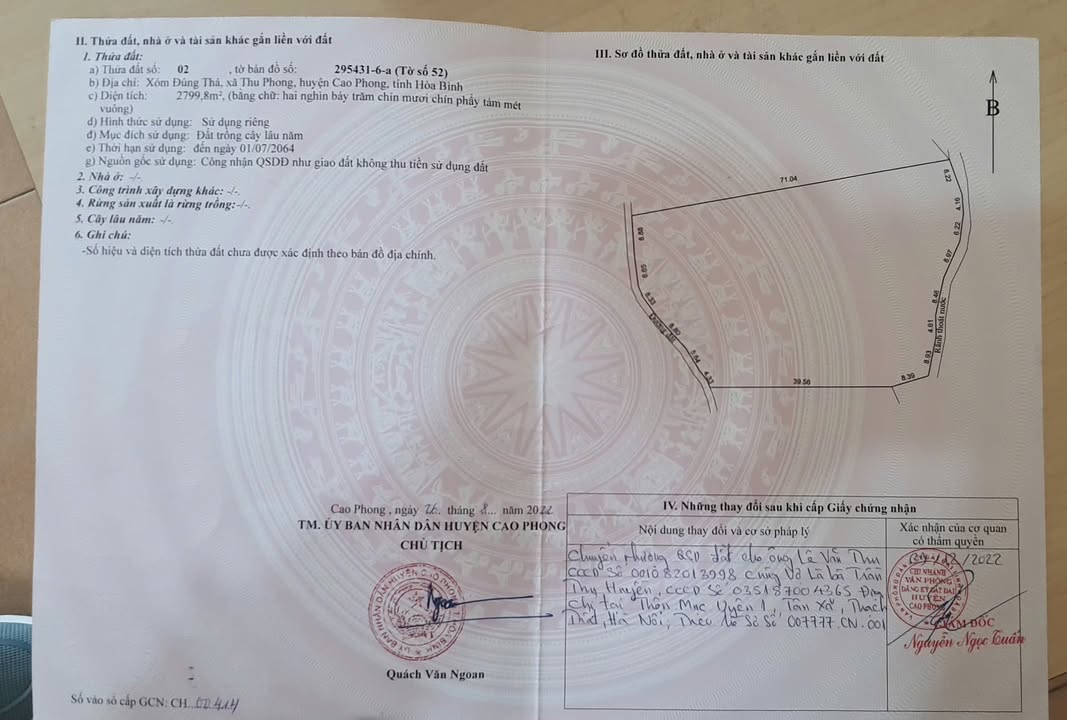 II. Thửa đất, nhà ở và tài sản khác gắn liền với đất
1. Thửa đất:
a) Thửa đất số: 02 , tờ bản đồ số: 295431-6-a (Tờ số 52)
b) Địa chỉ: Xóm Đúng Thá, xã Thu Phong, huyện Cao Phong, tỉnh Hòa Bình
c) Diện tích: 2799,8m², (bằng chữ: hai nghìn bảy trăm chín mươi chín phẩy tám mét
vuông)
d) Hình thức sử dụng: Sử dụng riêng
đ) Mục đích sử dụng: Đất trồng cây lâu năm
e) Thời hạn sử dụng: đến ngày 01/07/2064
g) Nguồn gốc sử dụng: Công nhận QSDĐ như giao đất không thu tiền sử dụng đất
2. Nhà ở: -/-.
3. Công trình xây dựng khác: -/-.
4. Rừng sản xuất là rừng trồng:-/-.
5. Cây lâu năm: -/-.
6. Ghi chú:
-Số hiệu và diện tích thửa đất chưa được xác định theo bản đồ địa chính.
III. Sơ đồ thửa đất, nhà ở và tài sản khác gắn liền với đất
B
71.04
8.22
4.16
6.22
8.97
8.46
4.81
8.93
Rãnh thoát nước
8.39
39.56
4.33
5.64
8.80
Đường đất
8.33
6.65
8.88
Cao Phong , ngày 26. tháng 8... năm 2022
TM. ỦY BAN NHÂN DÂN HUYỆN CAO PHONG
CHỦ TỊCH
Quách Văn Ngoan
Số vào sổ cấp GCN: CH...00414
IV. Những thay đổi sau khi cấp Giấy chứng nhận
Nội dung thay đổi và cơ sở pháp lý
Xác nhận của cơ quan
có thẩm quyền
Chuyển nhượng QSD đất cho ông Lê Văn Thu
CCCD Số 001082013998 Cùng Vợ Là bà Trần
Thị Huyền, CCCD Số 035187004365 Địa
Chỉ tại Thôn Mục Uyên 1, Tân Xã, Thạch
Thất, Hà Nội, Theo hồ Sơ Số 007777.CN.001
/12/2022
CHI NHÁNH
VĂN PHÒNG
ĐĂNG KÝ ĐẤT ĐAI
HUYỆN
CAO PHONG
GIÁM ĐỐC
Nguyễn Ngọc Tuấn